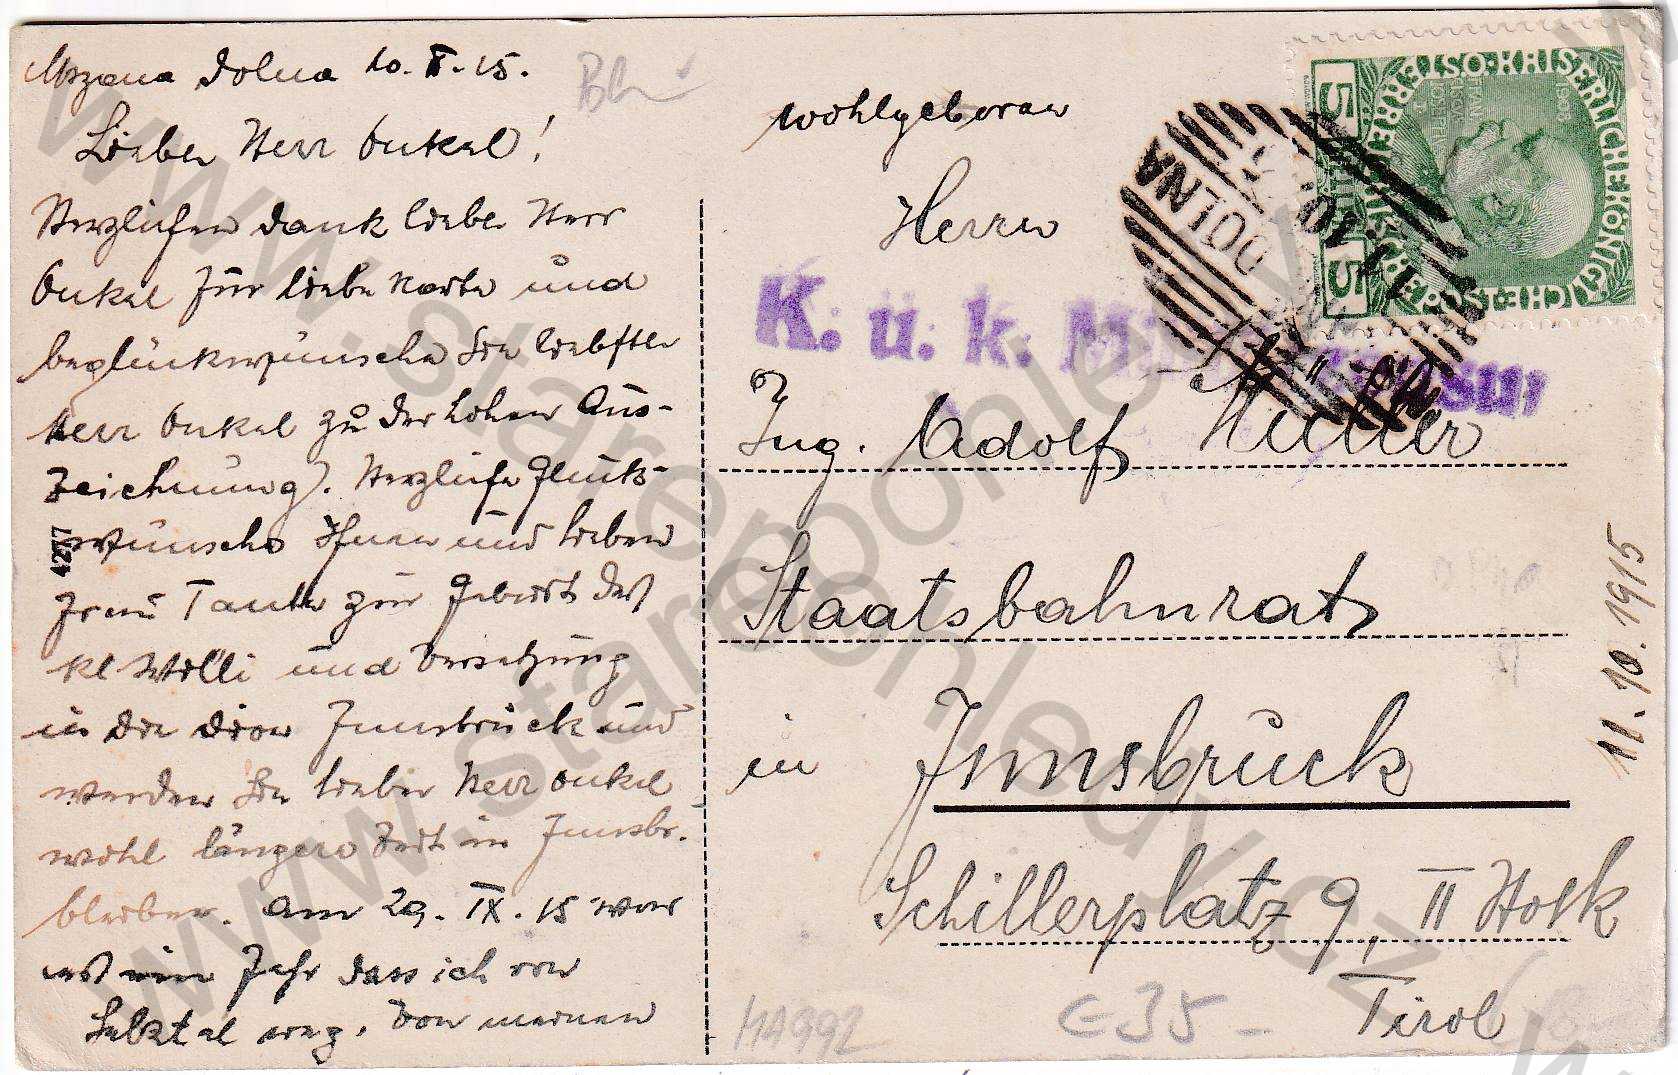 Mszana dolna 10. X. 15.
Lieber Herr Onkel!
Herzlichen Dank lieber Herr
Onkel für liebe Karte und
beglückwünsche Sie liebster
Herr Onkel zu der hohen Aus-
zeichnung). Herzliche Glück-
wünsche Ihnen und lieben
Frau Tante zur Geburt des
kl Willi und Versetzung
in die Innsbruck und
werden Sie lieber Herr Onkel
wohl längere Zeit in Innsbr.
bleiben. Am 29. IX. 15 war
es ein Jahr dass ich von
Selztal weg. Von meinen
4277
wohlgeboren
Herrn
Ing. Adolf
Staatsbahnrat
in Innsbruck
Schillerplatz 9, II Stock
Tirol
K. u. k. Mi
nsur
DOLNA
11.10
KAISERLICHE KÖNIGLICHE ÖSTERREICHISCHE POST
5 5
1908
11. 10. 1915
MA992
€35-
www.starepohledy.cz
www.starepohledy.cz